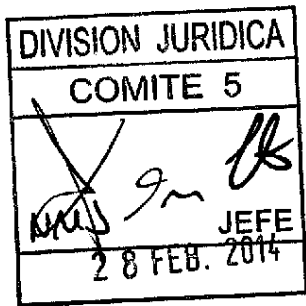 DIVISION JURIDICA
COMITE 5
JEFE
28 FEB. 2014